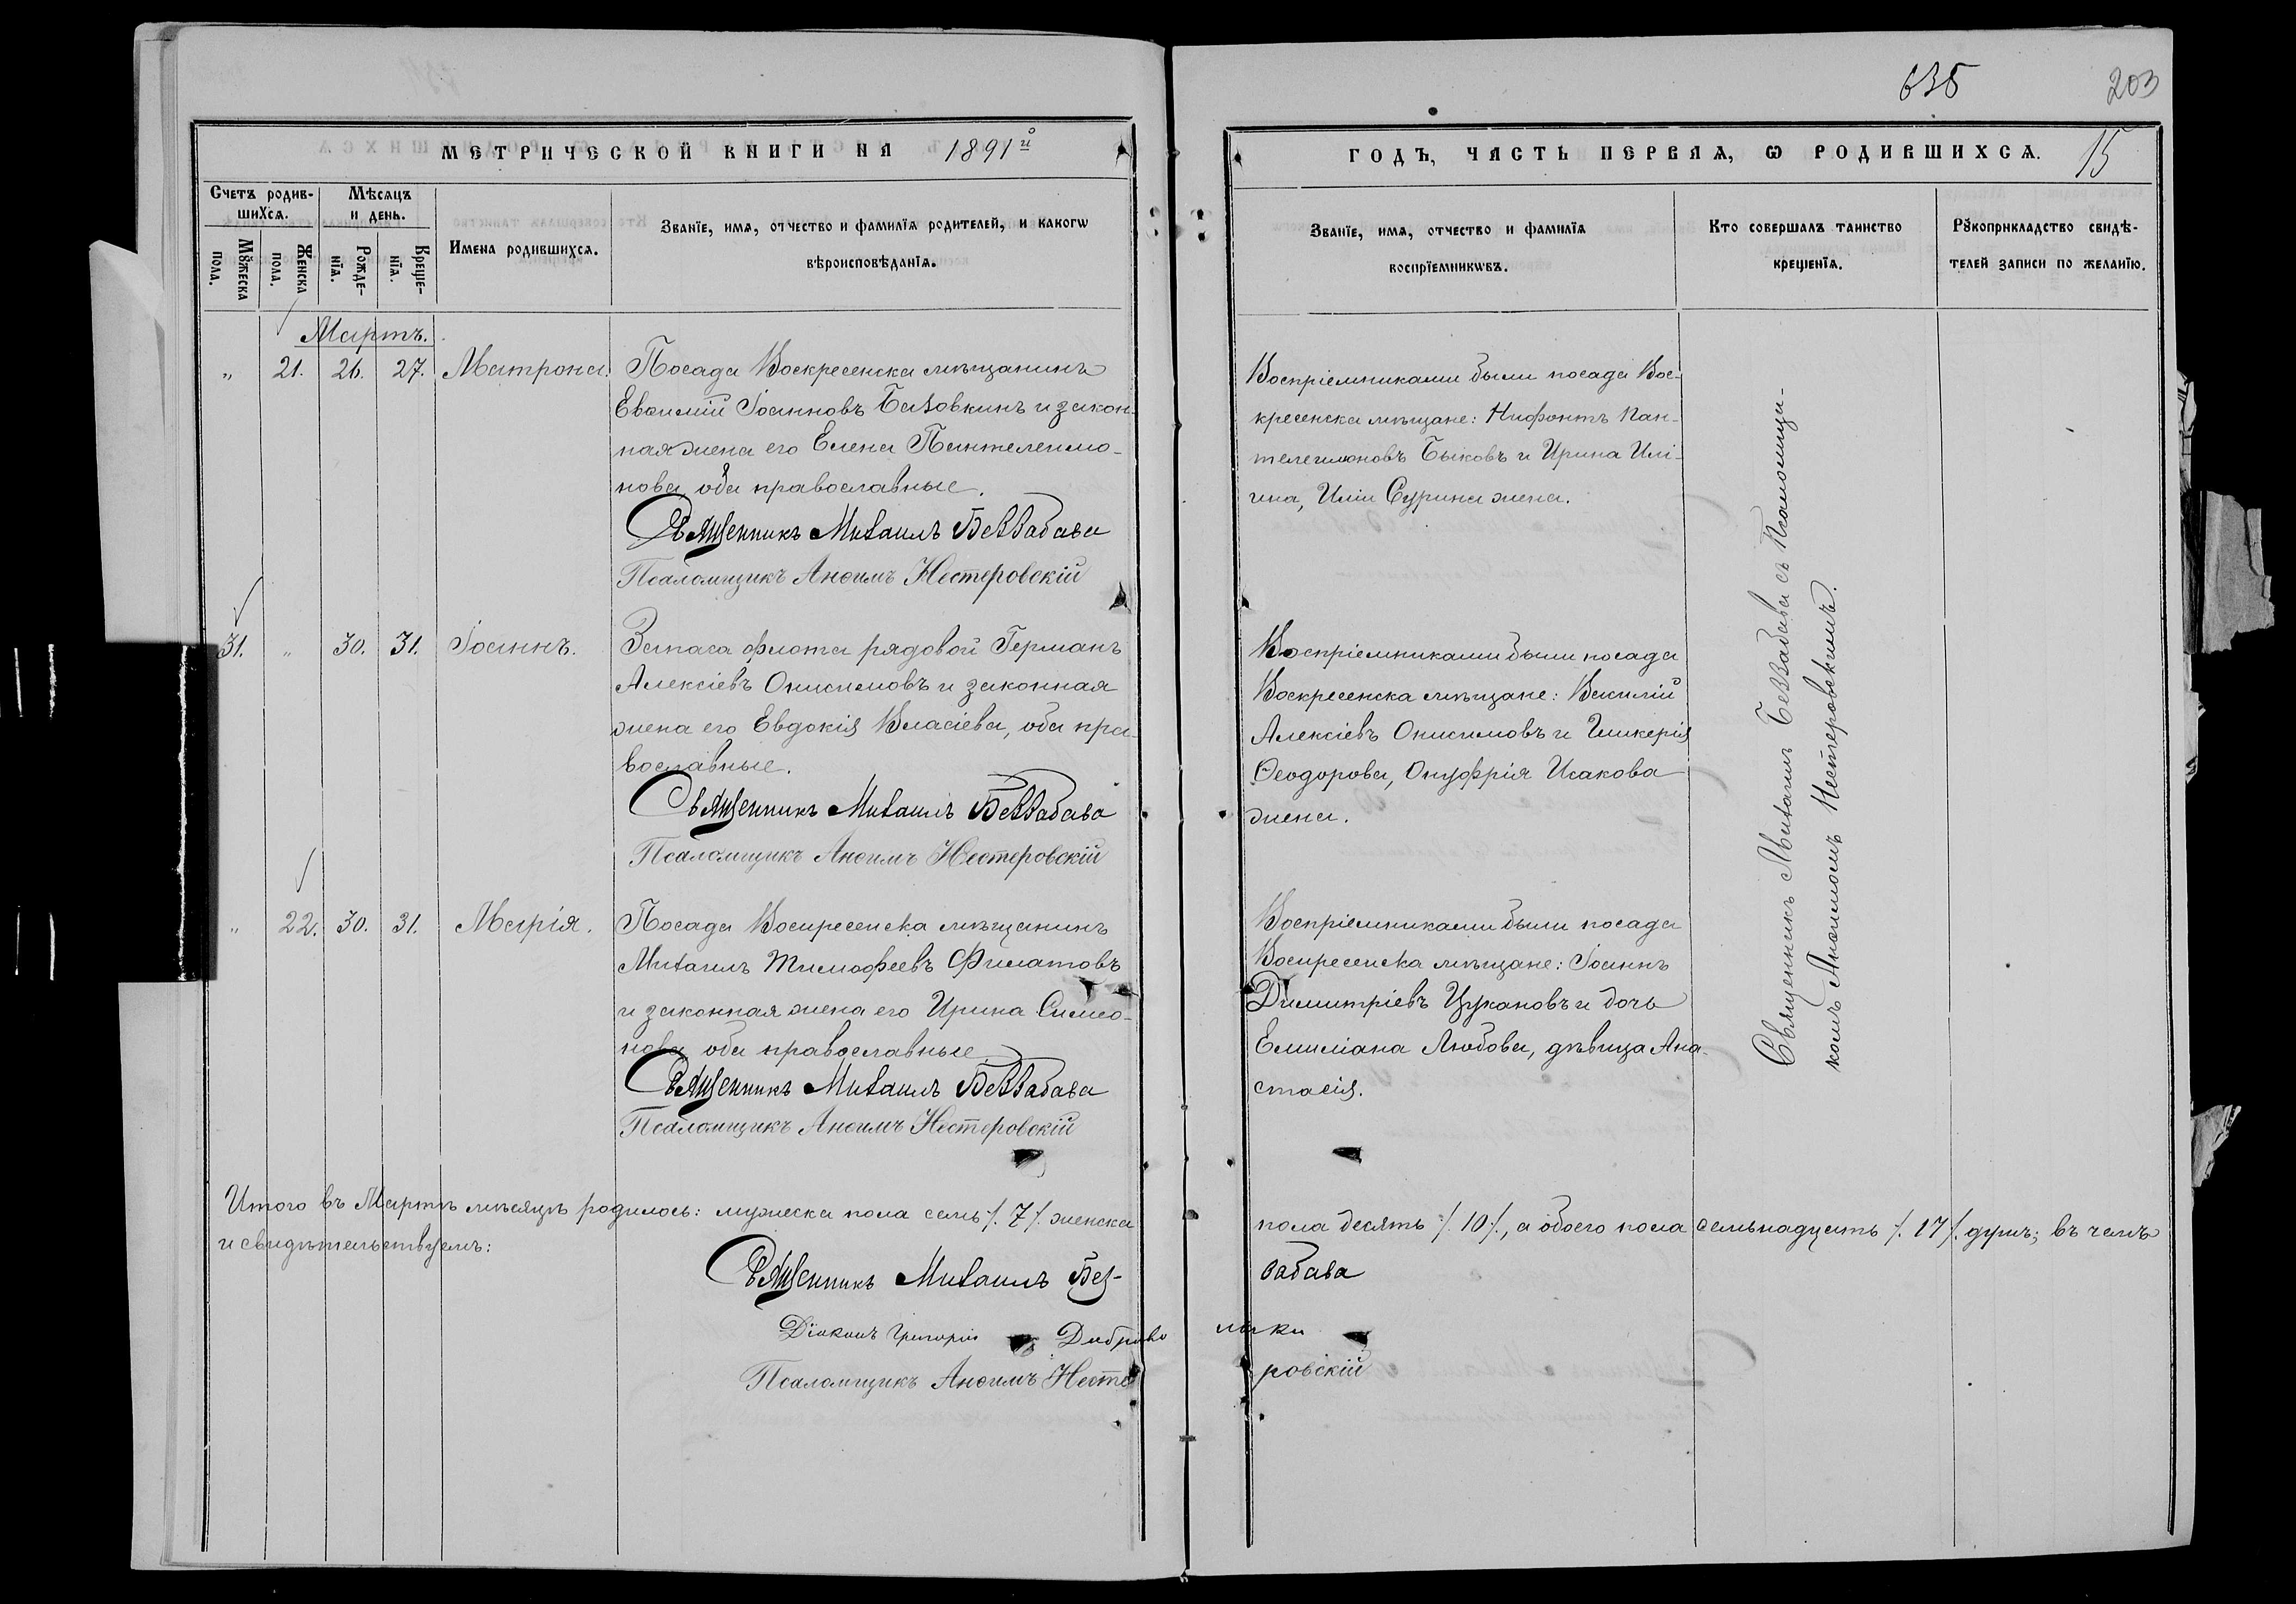 635
203
МЕТРИЧЕСКОЙ КНИГИ НА 1891й
ГОДЪ, ЧАСТЬ ПЕРВАЯ, Ѡ РОДИВШИХСЯ. 15
Счетъ родившихся.
Мѣсяцъ и день.
Мꙋжеска пола.
Женска пола.
Рожденїя.
Крещенїя.
Имена родившихся.
Званїе, имя, отчество и фамилїя родителей, и какогѡ
вѣроисповѣданїя.
Званїе, имя, отчество и фамилїя
воспрїемникѡвъ.
Кто совершалъ таинство
крещенїя.
Рꙋкоприкладство свидѣ-
телей записи по желанїю.
Мартъ.
„ 21. 26. 27. Матрона. Посада Воскресенска мѣщанинъ
Евѳимій Іоанновъ Базовкинъ и закон-
ная жена его Елена Пантелеимо-
нова, оба православные.
Священникъ Михаилъ Беззабава
Псаломщикъ Анѳимъ Нестеровскій
Воспріемниками были посада Вос-
кресенска мѣщане: Нифонтъ Пан-
телеимоновъ Быковъ и Ирина Илі-
ина, Иліи Сурина жена.
31. „ 30. 31. Іоаннъ. Запаса флота рядовой Германъ
Алексіевъ Онисимовъ и законная
жена его Евдокія Власіева, оба пра-
вославные.
Священникъ Михаилъ Беззабава
Псаломщикъ Анѳимъ Нестеровскій
Воспріемниками были посада
Воскресенска мѣщане: Василій
Алексіевъ Онисимовъ и Гликерія
Ѳеодорова, Онуфрія Исакова
жена.
„ 22. 30. 31. Марія. Посада Воскресенска мѣщанинъ
Михаилъ Тимофеевъ Филатовъ
и законная жена его Ирина Симео-
нова, оба православные.
Священникъ Михаилъ Беззабава
Псаломщикъ Анѳимъ Нестеровскій
Воспріемниками были посада
Воскресенска мѣщане: Іоаннъ
Димитріевъ Цукановъ и дочь
Емиліана Любова, дѣвица Ана-
стасія.
Священникъ Михаилъ Беззабава съ Псаломщи-
комъ Анѳимомъ Нестеровскимъ.
Итого въ Мартѣ мѣсяцѣ родилось: мужеска пола семь /. 7 /. женска пола десять /. 10 /., а обоего пола семьнадцать /. 17 /. душъ; въ чемъ
и свидѣтельствуемъ:
Священникъ Михаилъ Без-забава
Діаконъ Григорій
Псаломщикъ Анѳимъ Нестеровскій